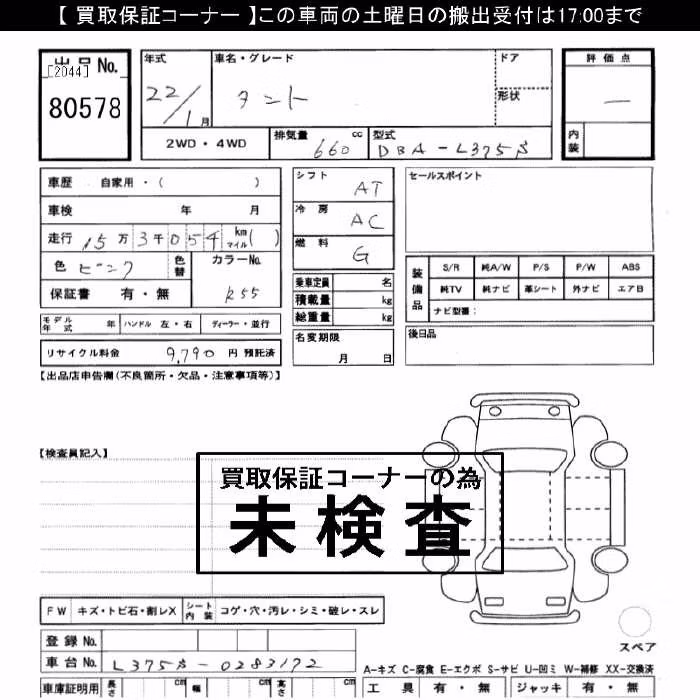 【 買取保証コーナー 】この車両の土曜日の搬出受付は17:00まで
出品 No.
[2044]
80578
年式
22/1月
車名・グレード
タント
ドア
形状
評価点
—
内装
2WD・4WD
排気量 660 cc
型式 DBA-L375S
車歴 自家用・( )
車検 年 月
走行 15万3千054 km マイル( )
色 ピンク 色替
カラーNo. R55
保証書 有・無
シフト AT
冷房 AC
燃料 G
乗車定員 名
積載量 kg
総重量 kg
セールスポイント
装備品
S/R 純A/W P/S P/W ABS
純TV 純ナビ 革シート 外ナビ エアB
ナビ型番:
モデル年式 年 ハンドル 左・右 ディーラー・並行
名変期限
月 日
後日品
リサイクル料金 9,790 円 預託済
【出品店申告欄(不良箇所・欠品・注意事項等)】
【検査員記入】
買取保証コーナーの為
未検査
FW キズ・トビ石・割レX シート内装 コゲ・穴・汚レ・シミ・破レ・スレ
スペア
登録 No.
車台 No. L375S-0283172
A-キズ C-腐食 E-エクボ S-サビ U-凹ミ W-補修 XX-交換済
車庫証明用 長さ cm 幅 cm 高さ cm
工具 有・無 ジャッキ 有・無